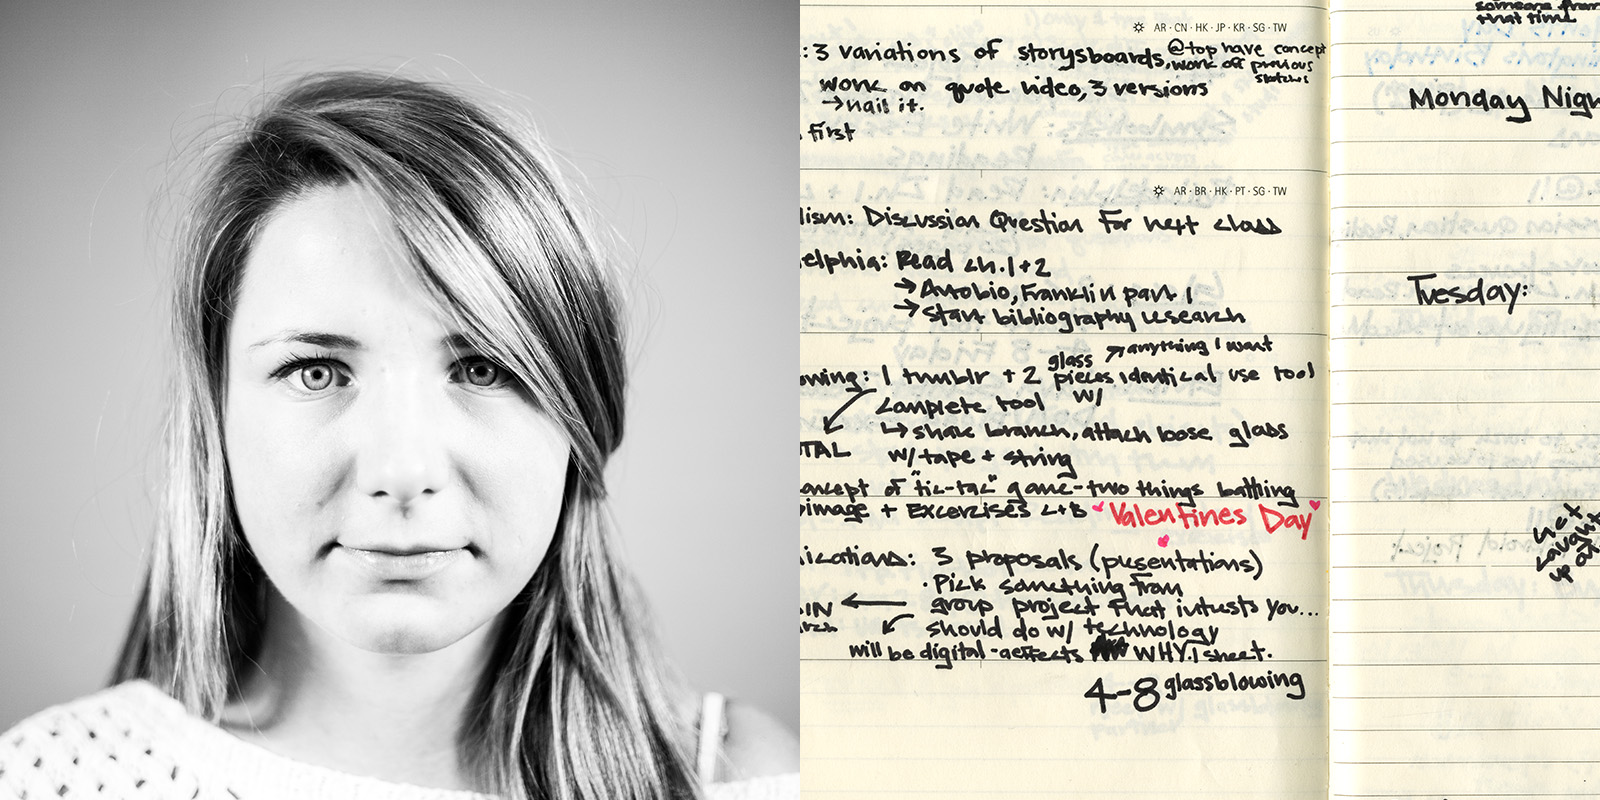 AR · CN · HK · JP · KR · SG · TW
: 3 variations of storysboards, @top have concept
work off previous
sketches
work on quote video, 3 versions
→ nail it.
first
AR · BR · HK · PT · SG · TW
lism: Discussion Question For next class
elphia: Read ch. 1 + 2
→ Autobio, Franklin part 1
→ start bibliography research
owing: 1 tumblr + 2 glass pieces identical use tool
↗ anything I want
w/
complete tool
↳ shake branch, attach loose glass
TAL w/ tape + string
oncept of "tic-tac" game - two things battling
image + Excersises L+B Valentines Day
ications: 3 proposals (presentations)
· Pick something From
IN ← group project that intrests you...
should do w/ technology
will be digital - aeffects WHY. 1 sheet.
4-8 glassblowing
someone from
that time
Monday Nigh
Tuesday:
get
caught
up at